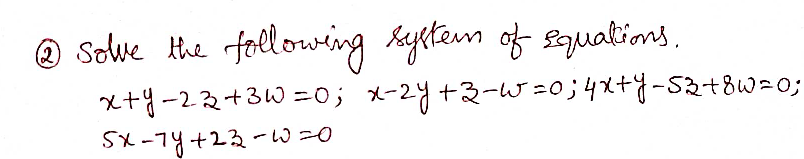 ② Solve the following system of equations.
x+y-2z+3w=0; x-2y+z-w=0; 4x+y-5z+8w=0;
5x-7y+2z-w=0